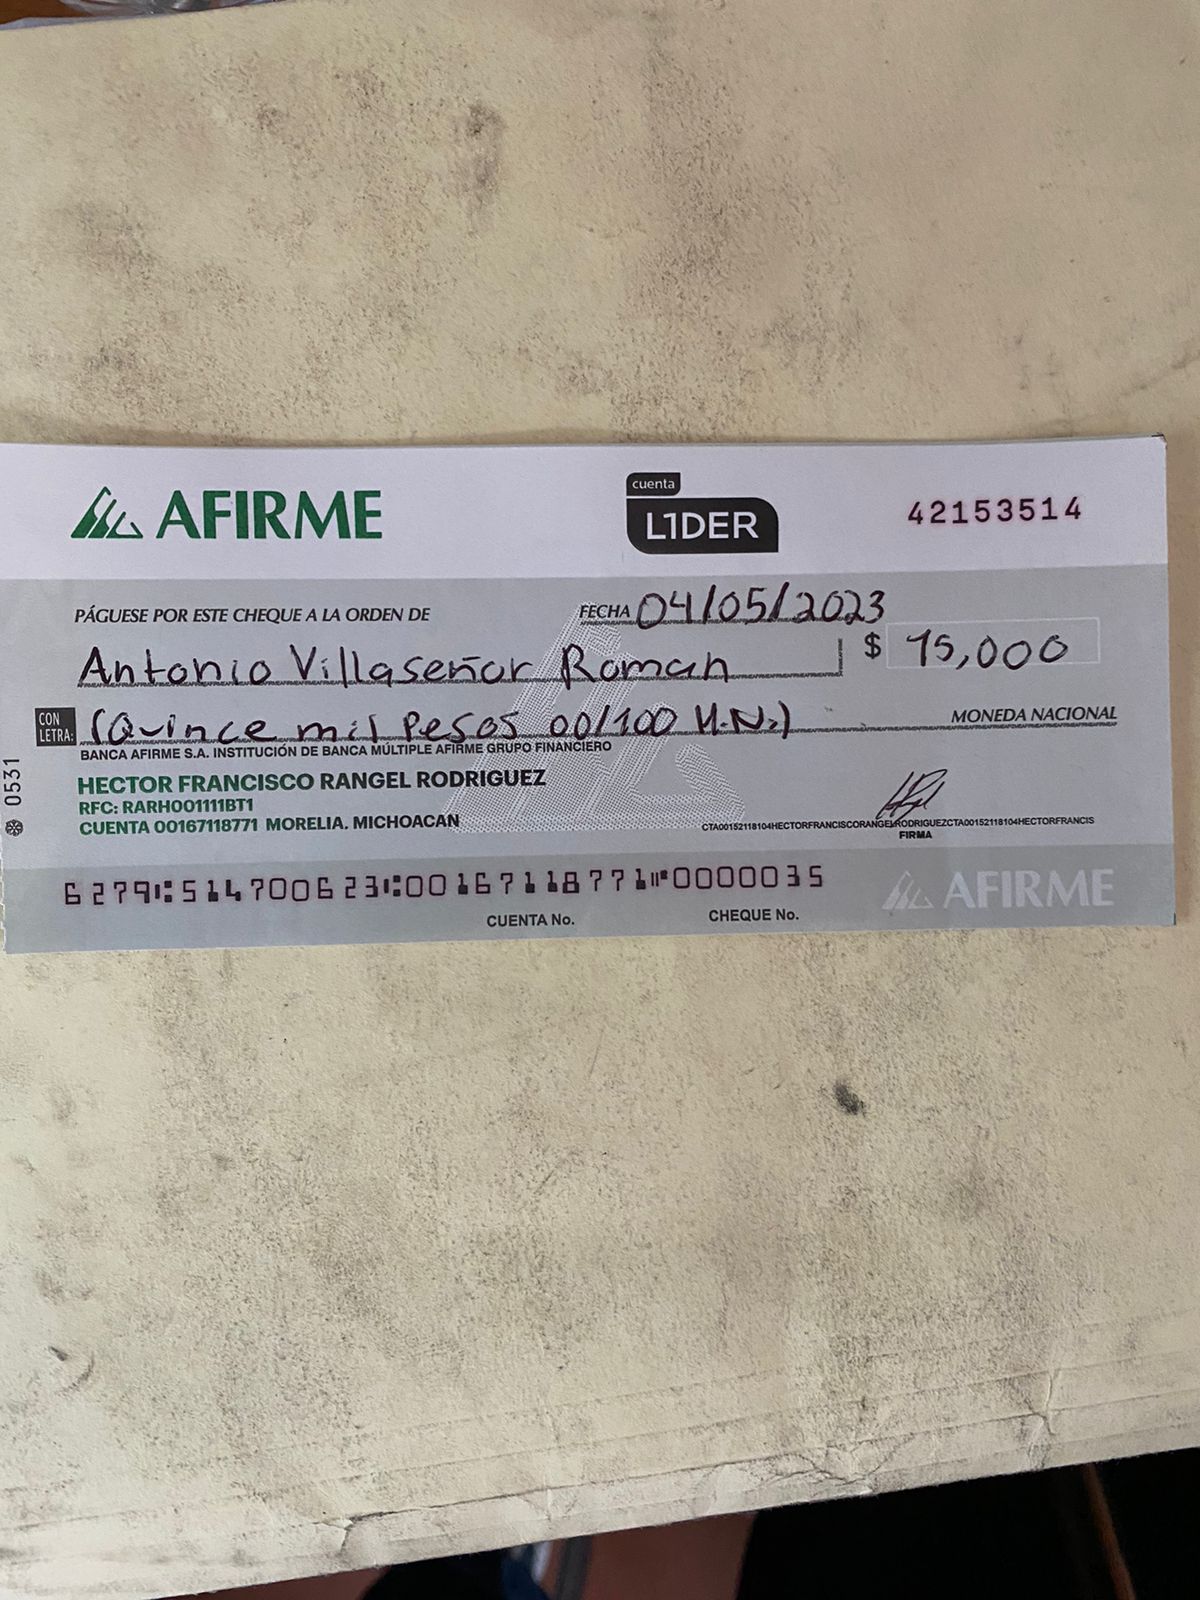 AFIRME
cuenta
L1DER
42153514
PÁGUESE POR ESTE CHEQUE A LA ORDEN DE
FECHA 04/05/2023
Antonio Villaseñor Roman $ 15,000
CON LETRA: (Quince mil pesos 00/100 M.N.) MONEDA NACIONAL
BANCA AFIRME S.A. INSTITUCIÓN DE BANCA MÚLTIPLE AFIRME GRUPO FINANCIERO
HECTOR FRANCISCO RANGEL RODRIGUEZ
RFC: RARH001111BT1
CUENTA 00167118771 MORELIA. MICHOACAN
CTA00152118104HECTORFRANCISCORANGELRODRIGUEZCTA00152118104HECTORFRANCIS
FIRMA
0531
6279⑆514700623⑆00167118771⑈0000035
AFIRME
CUENTA No.
CHEQUE No.